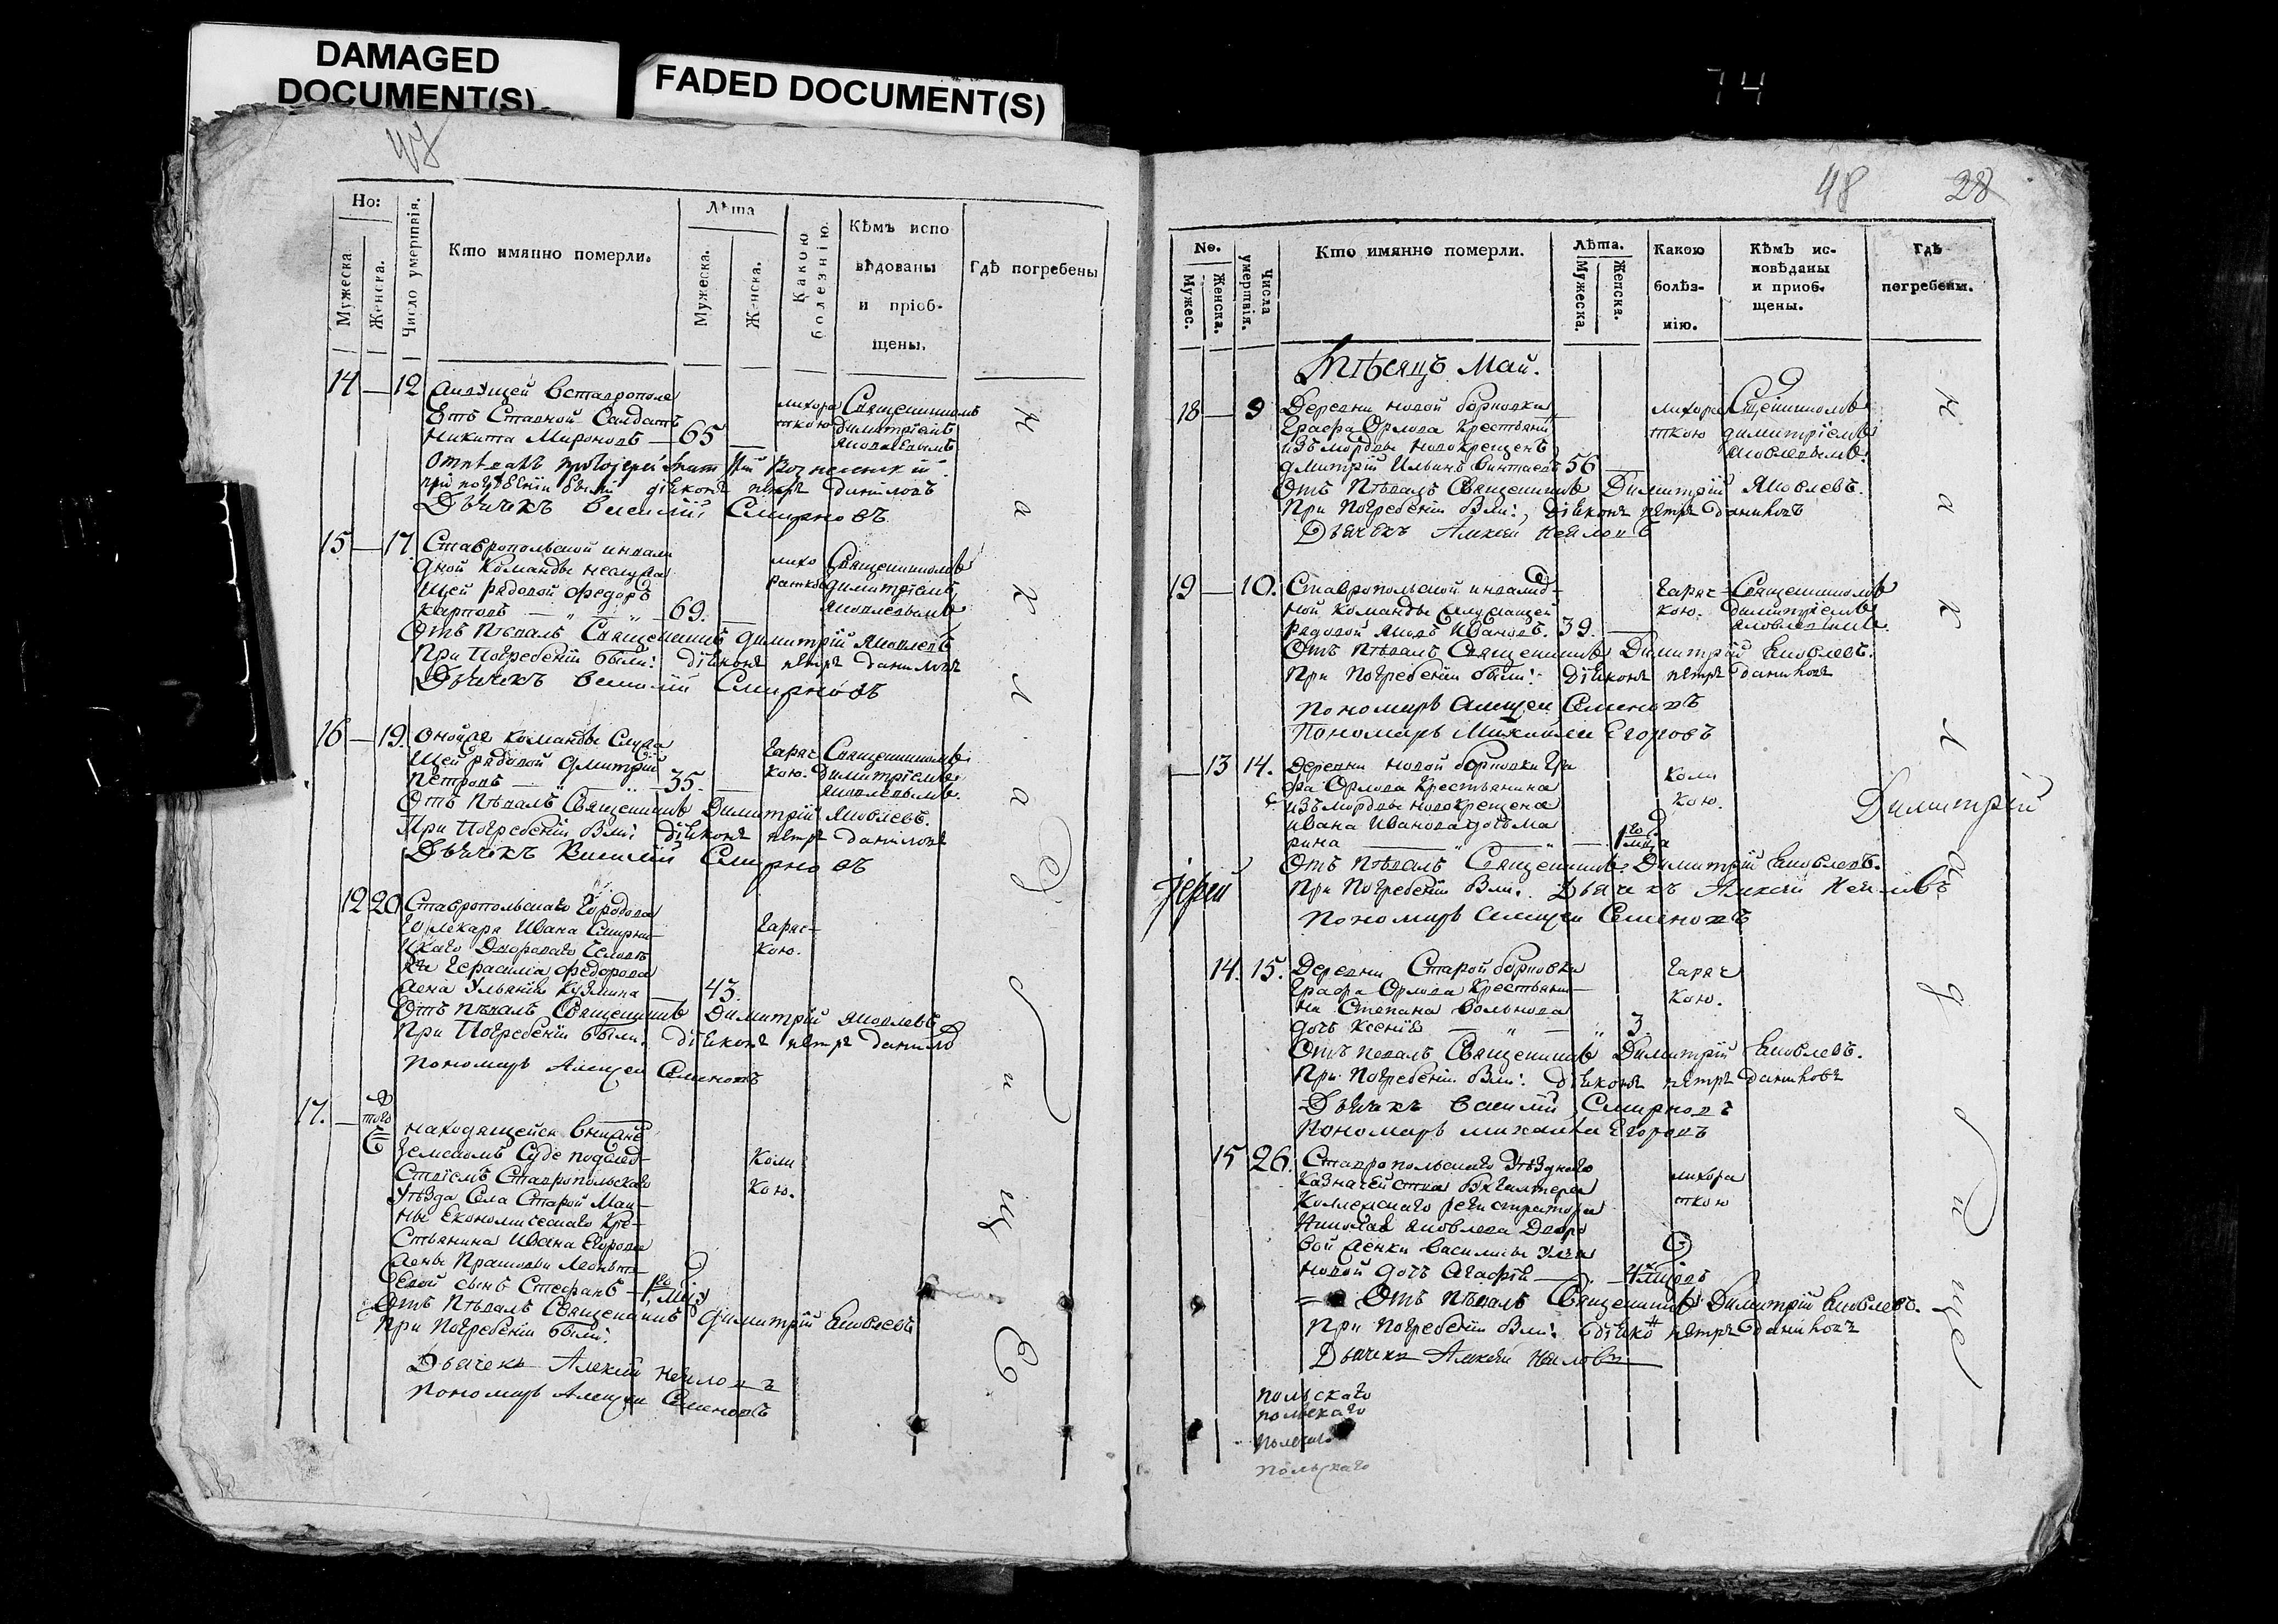 DAMAGED
DOCUMENT(S)
FADED DOCUMENT(S)
74
47
Но:
Мужеска.
Женска.
Число умертвія.
Кто имянно померли.
Лѣта
Мужеска.
Женска.
Какою
болезнію.
Кѣмъ испо
вѣдованы
и пріоб-
щены.
Гдѣ погребены
14 — 12
въ Ставрополе
Никита Мироновъ — 65 —
лихора
ткою
Священникомъ
Димитріемъ
Яковлевымъ
при погребеніи были діаконъ петръ даниловъ
Дьячекъ Василій Смирновъ
15 — 17. Ставропольской инвали
дной команды неслужа
щей рядовой Федоръ
Карповъ — " — " 69. —
лихо
раткою
Священникомъ
Димитріемъ
Яковлевымъ
Отъ пѣвалъ Священникъ Димитрій Яковлевъ
При погребеніи были: діаконъ петръ даниловъ
Дьячекъ Василій Смирновъ
16 — 19. оной же команды Служа
щей рядовой Дмитрій
Петровъ — " — " 35. —
Горяч
кою.
Священникомъ
Димитріемъ
Яковлевымъ.
Отъ пѣвалъ Священникъ Димитрій Яковлевъ.
При погребеніи были: діаконъ петръ даниловъ
Дьячекъ Василій Смирновъ
12 20 Ставропольскаго Городова
го лекаря Ивана
Двороваго Челове
ка Герасима Федорова
жена Ульянія Кузмина — 43.
Горяч-
кою.
Отъ пѣвалъ Священникъ Димитрій Яковлевъ
При погребеніи были: діаконъ петръ данило
пономарь Алексеи Семеновъ
17. — того
находящейся
земскомъ Суде подслед-
ствіемъ Ставропольскаго
Уѣзда Села Старой Маи-
ны Економическаго Кре-
стьянина Ивана
жены Прасковьи Леонтье
вой сынъ Стефанъ — 1го мцу
Коли
кою.
Отъ пѣвалъ Священникъ Димитрій Яковлевъ
При погребеніи были:
Дьячекъ Алексей Неиловъ
пономарь Алексеи Семеновъ
48
28
No.
Мужес.
Женска.
Числа
умертвія.
Кто имянно померли.
Лѣта.
Мужеска.
Женска.
Какою
болѣз-
нію.
Кѣмъ ис-
повѣданы
и приоб-
щены.
Гдѣ
погребены.
Мѣсяцъ Май.
18 — 9 Деревни новой борковки
Графа Орлова Крестьянин
изъ мордвы новокрещенъ
дмитрій Ильинъ 56 —
лихора
ткою
Священникомъ
димитріемъ
Яковлевымъ.
Отъ пѣвалъ Священникъ Димитрій Яковлевъ.
При погребеніи были: діаконъ петръ даниловъ
Дьячекъ Алексей Неиловъ
19 — 10. Ставропольской инвалид-
ной команды Служащей
рядовой Яковъ Ивановъ. 39. —
Горяч-
кою.
Священникомъ
Димитріемъ
Яковлевымъ.
Отъ пѣвалъ Священникъ Димитрій Яковлевъ.
При погребеніи были: діаконъ петръ даниловъ
пономарь Алексеи Семеновъ
Пономарь Михаила Егоровъ
— 13 14. Деревни новой борковки Гра
фа Орлова Крестьянина
изъ мордвы новокрещена
ивана Иванова дочь ма
рина — " — " — 1го мца
Коли
кою.
Отъ пѣвалъ Священникъ Димитрій Яковлевъ.
При погребеніи были: Дьячекъ Алексей Неиловъ
пономарь Алексеи Семеновъ
Іерей
Димитрій
14. 15. Деревни Старой борковки
Графа Орлова Крестьяни-
на Степана Вольнова
дочь Ксенія — " — " 3.
Горяч
кою.
Отъ певалъ Священникъ Димитрій Яковлевъ.
При погребеніи были: діаконъ петръ даниловъ
Дьячекъ Василій Смирновъ
Пономарь михаила Егоровъ
15 26. Ставропольскаго Уѣзднаго
Казначейства бухгалтера
Коллежскаго регистратора
Николая Яковлева Дворо
вой женки Василисы
новой дочь Агафія — 4х мцовъ
лихора
ткою
Отъ пѣвалъ Священникъ Димитрій Яковлевъ.
При погребеніи были: діаконъ петръ даниловъ
Дьячекъ Алексей Неиловъ
польскаго
польскаго
польскаго
польскаго